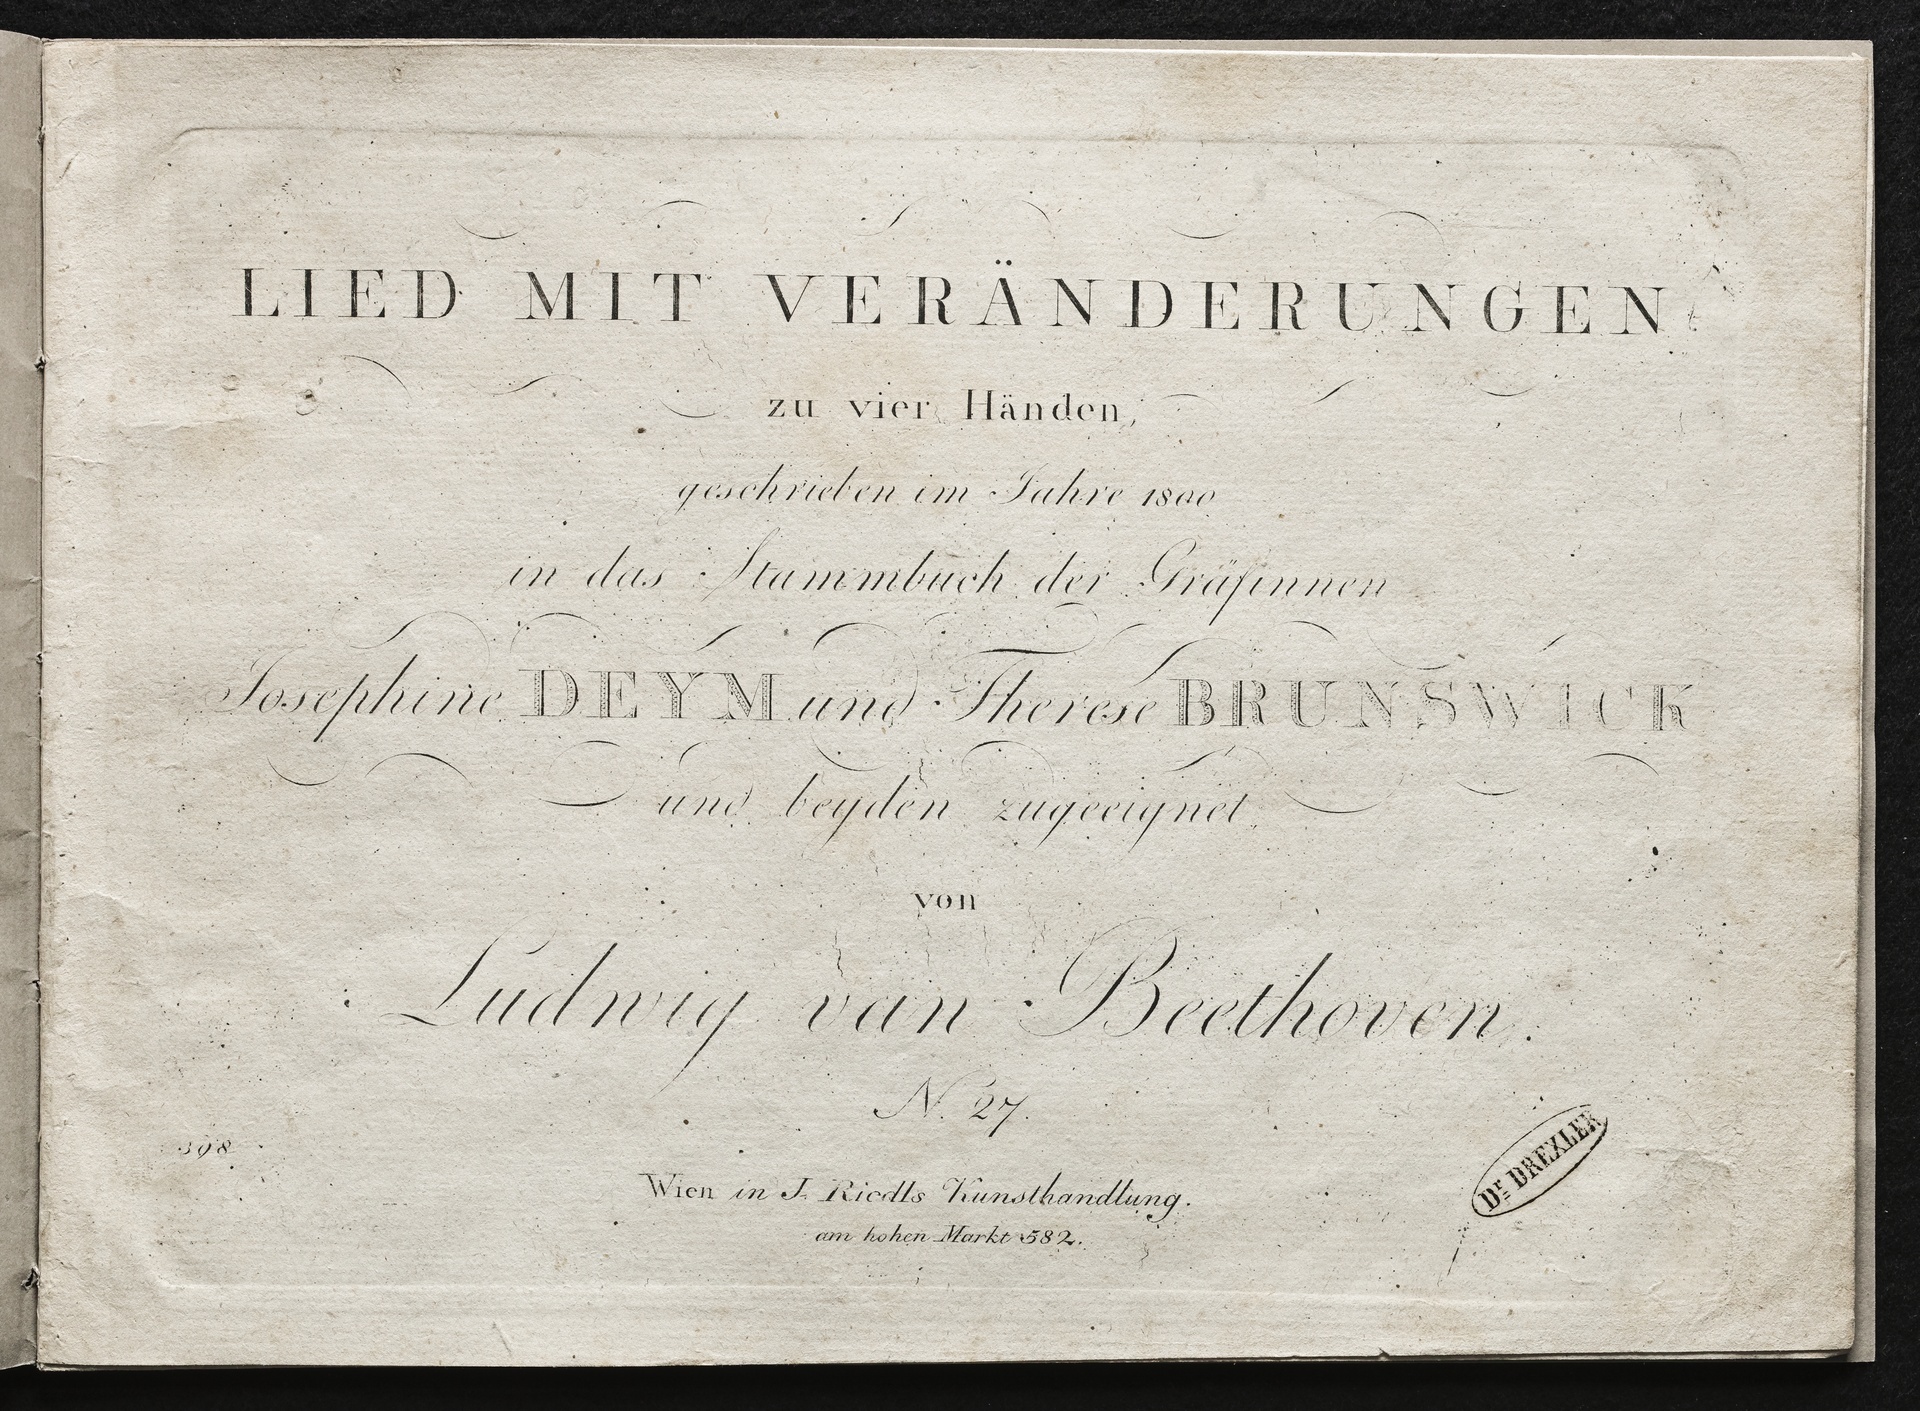 LIED MIT VERÄNDERUNGEN
zu vier Händen,
geschrieben im Jahre 1800
in das Stammbuch der Gräfinnen
Josephine DEYM und Therese BRUNSWICK
und beyden zugeeignet
von
Ludwig van Beethoven.
N. 27.
398
Wien in J. Riedls Kunsthandlung.
am hohen Markt 582.
Dr. DREXLER